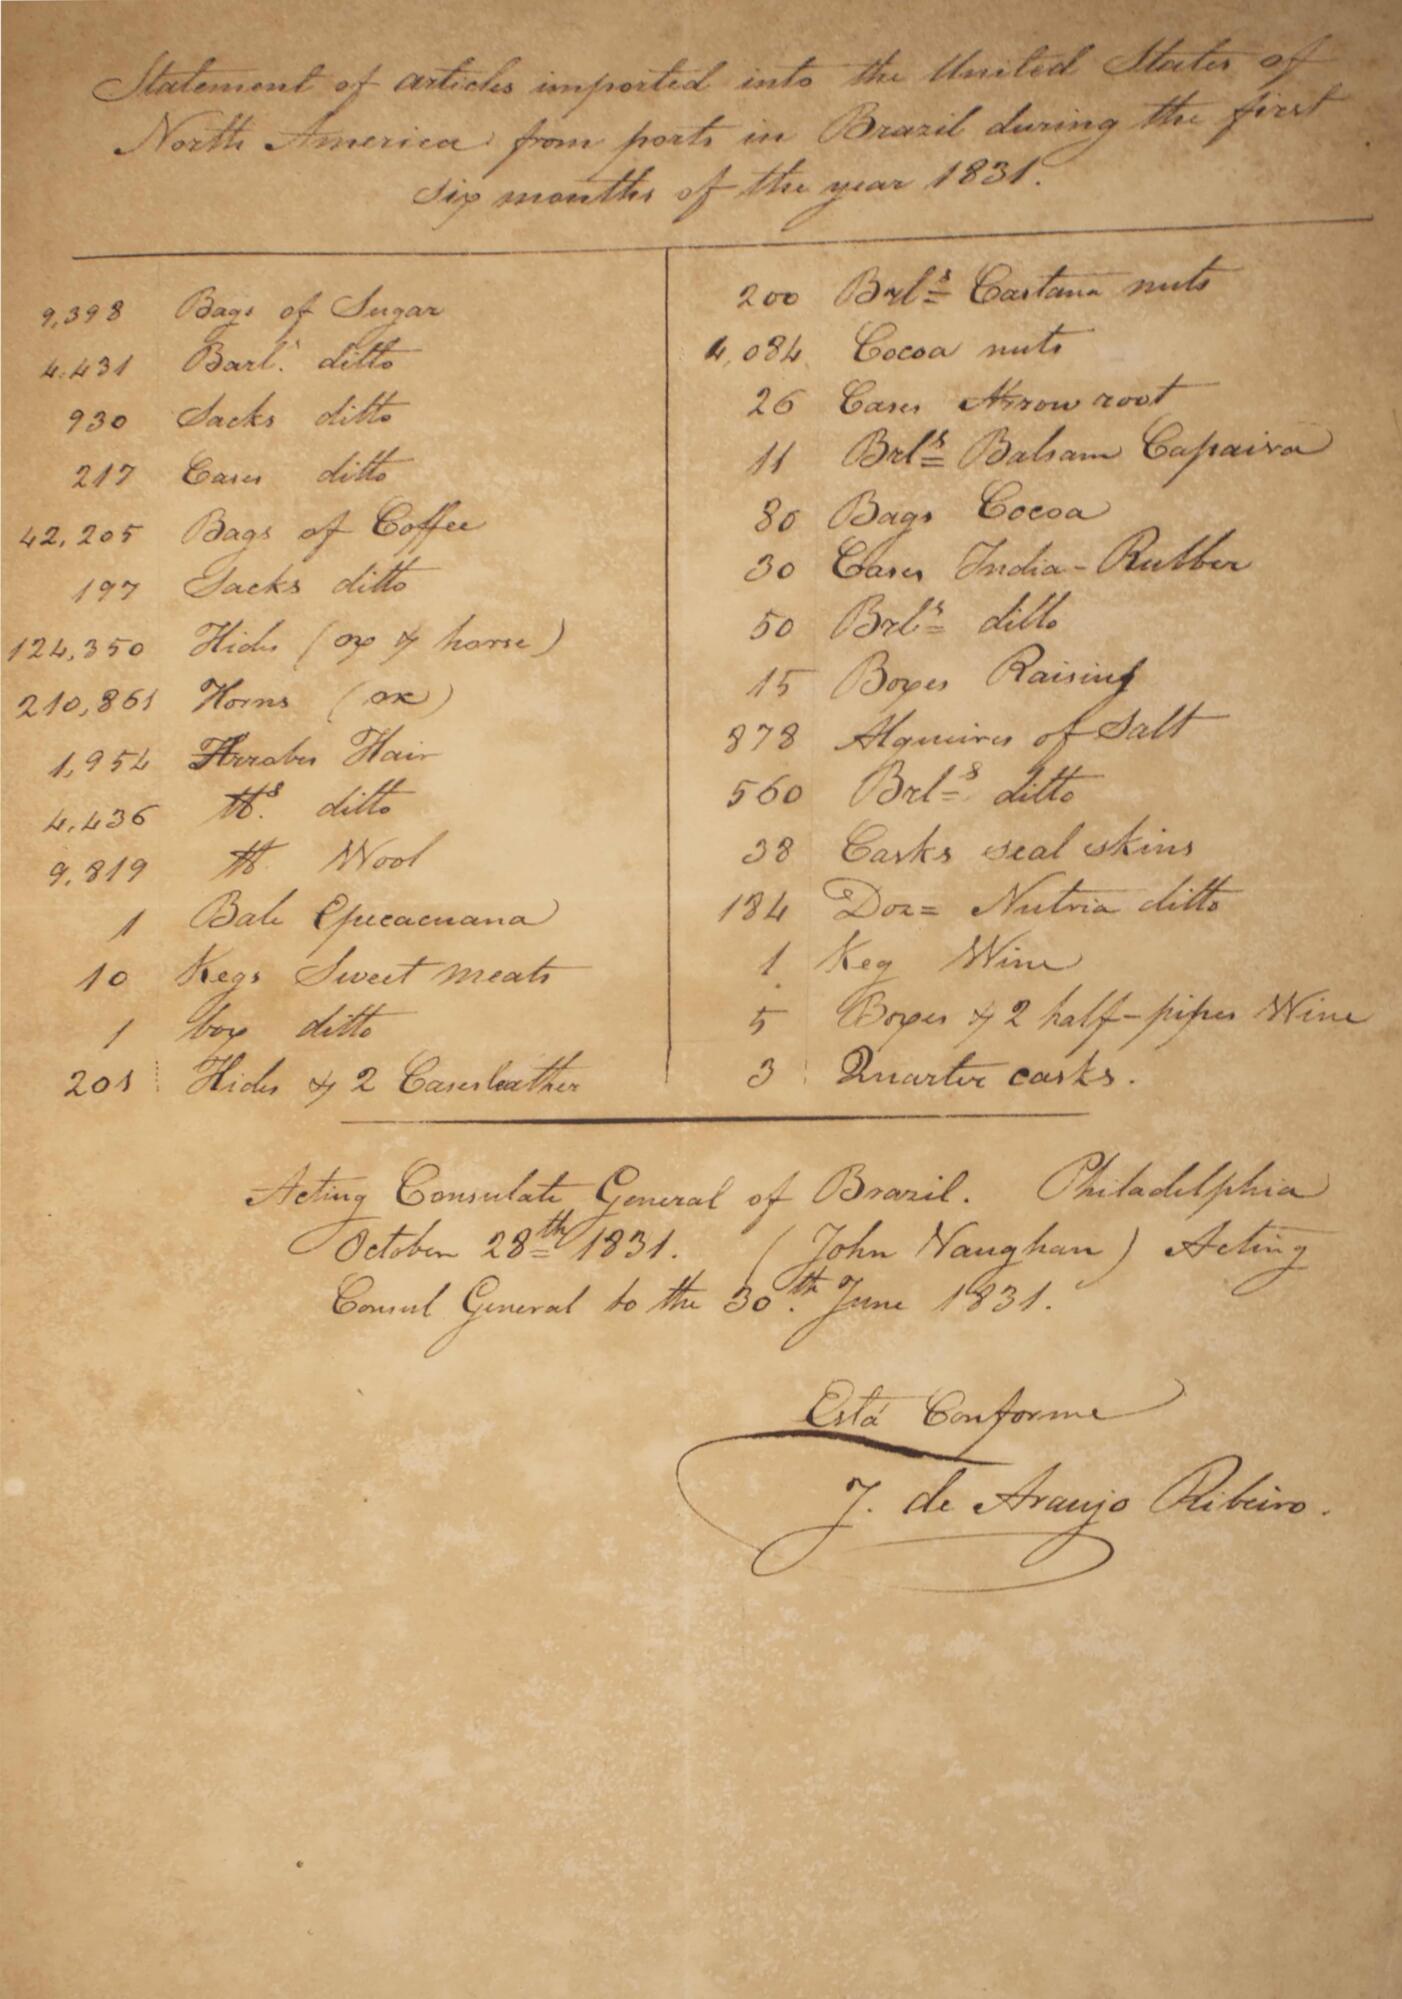 Statement of articles imported into the United States of
North America from ports in Brazil during the first
six months of the year 1831.
9,398 Bags of Sugar
4,431 Barl.s ditto
930 Sacks ditto
217 Cases ditto
42,205 Bags of Coffee
197 Sacks ditto
124,350 Hides (ox & horse)
210,861 Horns (ox)
1,954 Arrobes Hair
4,436 ℔s. ditto
9,819 ℔ Wool
1 Bale Epecacuana
10 Kegs Sweet meats
1 box ditto
201 Hides & 2 Cases leather
200 Brls Castana nuts
4,084 Cocoa nuts
26 Cases Arrow root
11 Brls Balsam Capaiva
80 Bags Cocoa
30 Cases India-Rubber
50 Brls ditto
15 Boxes Raisins
878 Alqueires of Salt
560 Brls ditto
38 Casks seal skins
184 Doz= Nutria ditto
1 Keg Wine
5 Boxes & 2 half-pipes Wine
3 Quarter casks.
Acting Consulate General of Brazil. Philadelphia
October 28th 1831. (John Vaughan) Acting
Consul General to the 30th. June 1831.
Está Conforme
J. de Araujo Ribeiro.